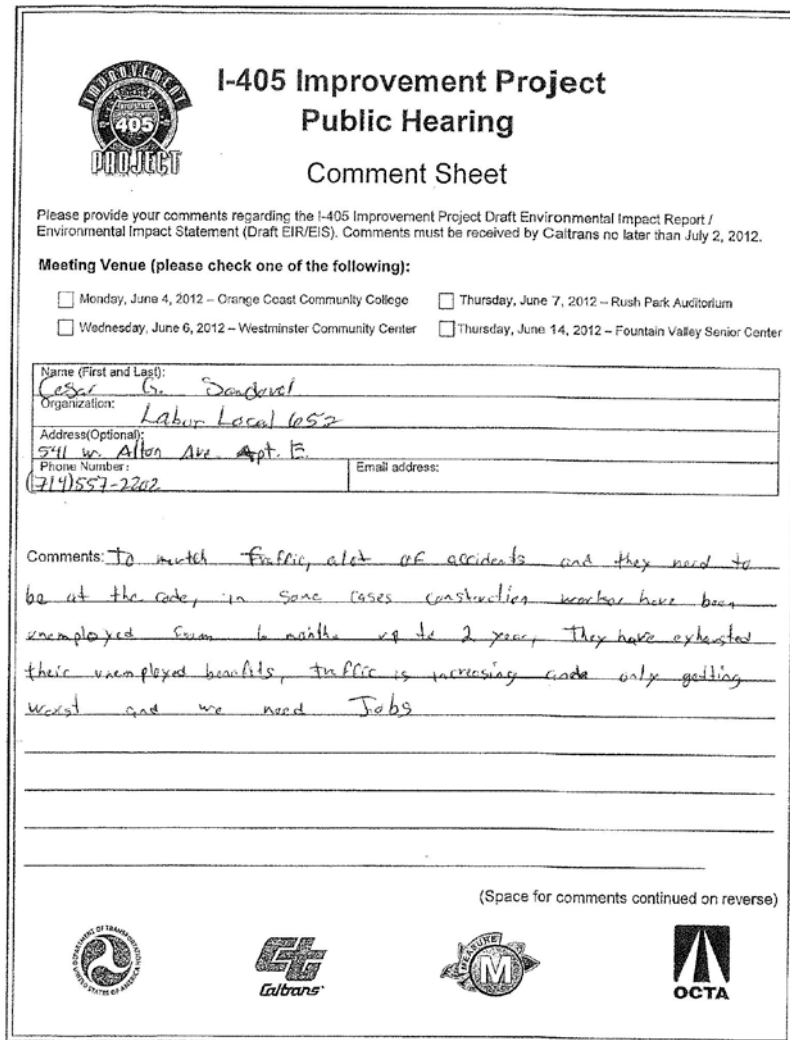 IMPROVEMENT
INTERSTATE
405
PROJECT
I-405 Improvement Project
Public Hearing
Comment Sheet
Please provide your comments regarding the I-405 Improvement Project Draft Environmental Impact Report /
Environmental Impact Statement (Draft EIR/EIS). Comments must be received by Caltrans no later than July 2, 2012.
Meeting Venue (please check one of the following):
Monday, June 4, 2012 – Orange Coast Community College
Thursday, June 7, 2012 – Rush Park Auditorium
Wednesday, June 6, 2012 – Westminster Community Center
Thursday, June 14, 2012 – Fountain Valley Senior Center
Name (First and Last):
Cesar G. Sandovel
Organization:
Labor Local 652
Address(Optional):
541 w. Alton Ave. Apt. E.
Phone Number:
Email address:
(714)557-2202
Comments: To mutch traffic, alot of accidents and they need to
be at the code, in some cases construction worker have been
unemployed from 6 months up to 2 year, They have exhausted
their unemployed benefits, traffic is increasing and only getting
worst and we need Jobs
(Space for comments continued on reverse)
DEPARTMENT OF TRANSPORTATION
UNITED STATES OF AMERICA
Caltrans
MEASURE
M
OCTA